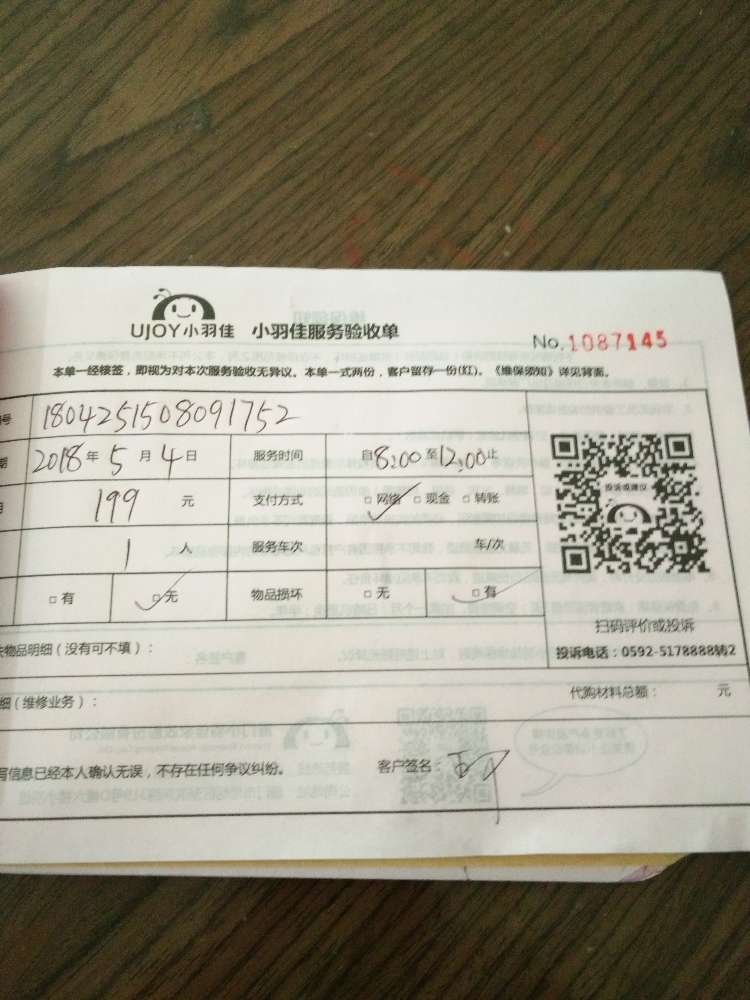 UJOY小羽佳 小羽佳服务验收单 No.1087145
本单一经核签，即视为对本次服务验收无异议。本单一式两份，客户留存一份(红)。《维保须知》详见背面。
号 1804251508091752
期 2018年5月4日 服务时间 自8:00至12:00止
199 元 支付方式 □网络 □现金 □转账
1 人 服务车次 车/次
□有 □无 物品损坏 □无 □有
投诉或建议
扫码评价或投诉
物品明细（没有可不填）： 投诉电话：0592-5178888转2
细（维修业务）： 代购材料总额： 元
写信息已经本人确认无误，不存在任何争议纠纷。 客户签名：